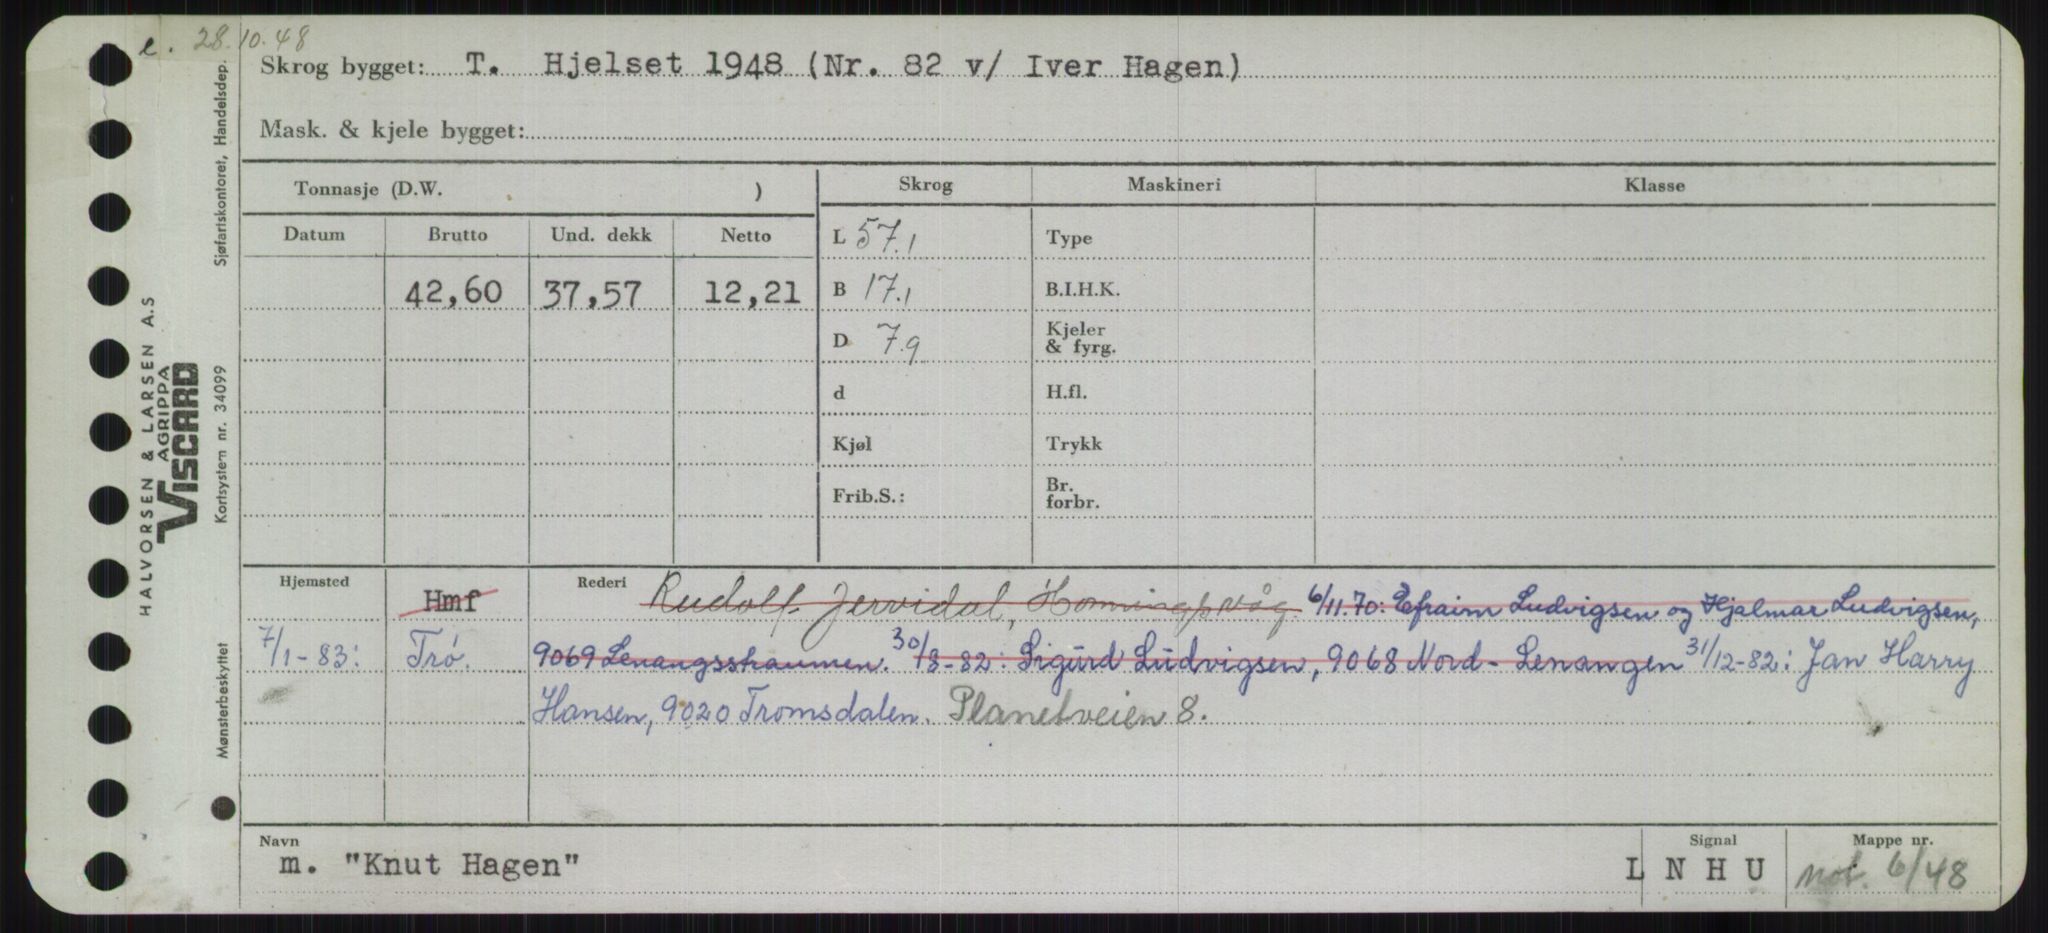 e. 28.10.48
Skrog bygget: T. Hjelset 1948 (Nr. 82 v/ Iver Hagen)
Mask. & kjele bygget:
Tonnasje (D.W. )
Skrog Maskineri Klasse
Datum Brutto Und. dekk Netto
L 57.1 Type
42,60 37,57 12,21
B 17.1 B.I.H.K.
D 7.9 Kjeler & fyrg.
d H.fl.
Kjøl Trykk
Frib.S.: Br. forbr.
Hjemsted Hmf Rederi Rudolf Jervidal, Honningsvåg 6/11.70: Efraim Ludvigsen og Hjalmar Ludvigsen,
7/1-83: Trø. 9069 Lenangsstraumen. 30/8-82: Sigurd Ludvigsen, 9068 Nord-Lenangen 31/12-82: Jan Harry
Hansen, 9020 Tromsdalen. Planetveien 8.
Navn Signal Mappe nr.
m. "Knut Hagen" L N H U not. 6/48
HALVORSEN & LARSEN A.S
AGRIPPA
VISCARD
Mønsterbeskyttet Kortsystem nr. 34099 Sjøfartskontoret, Handelsdep.